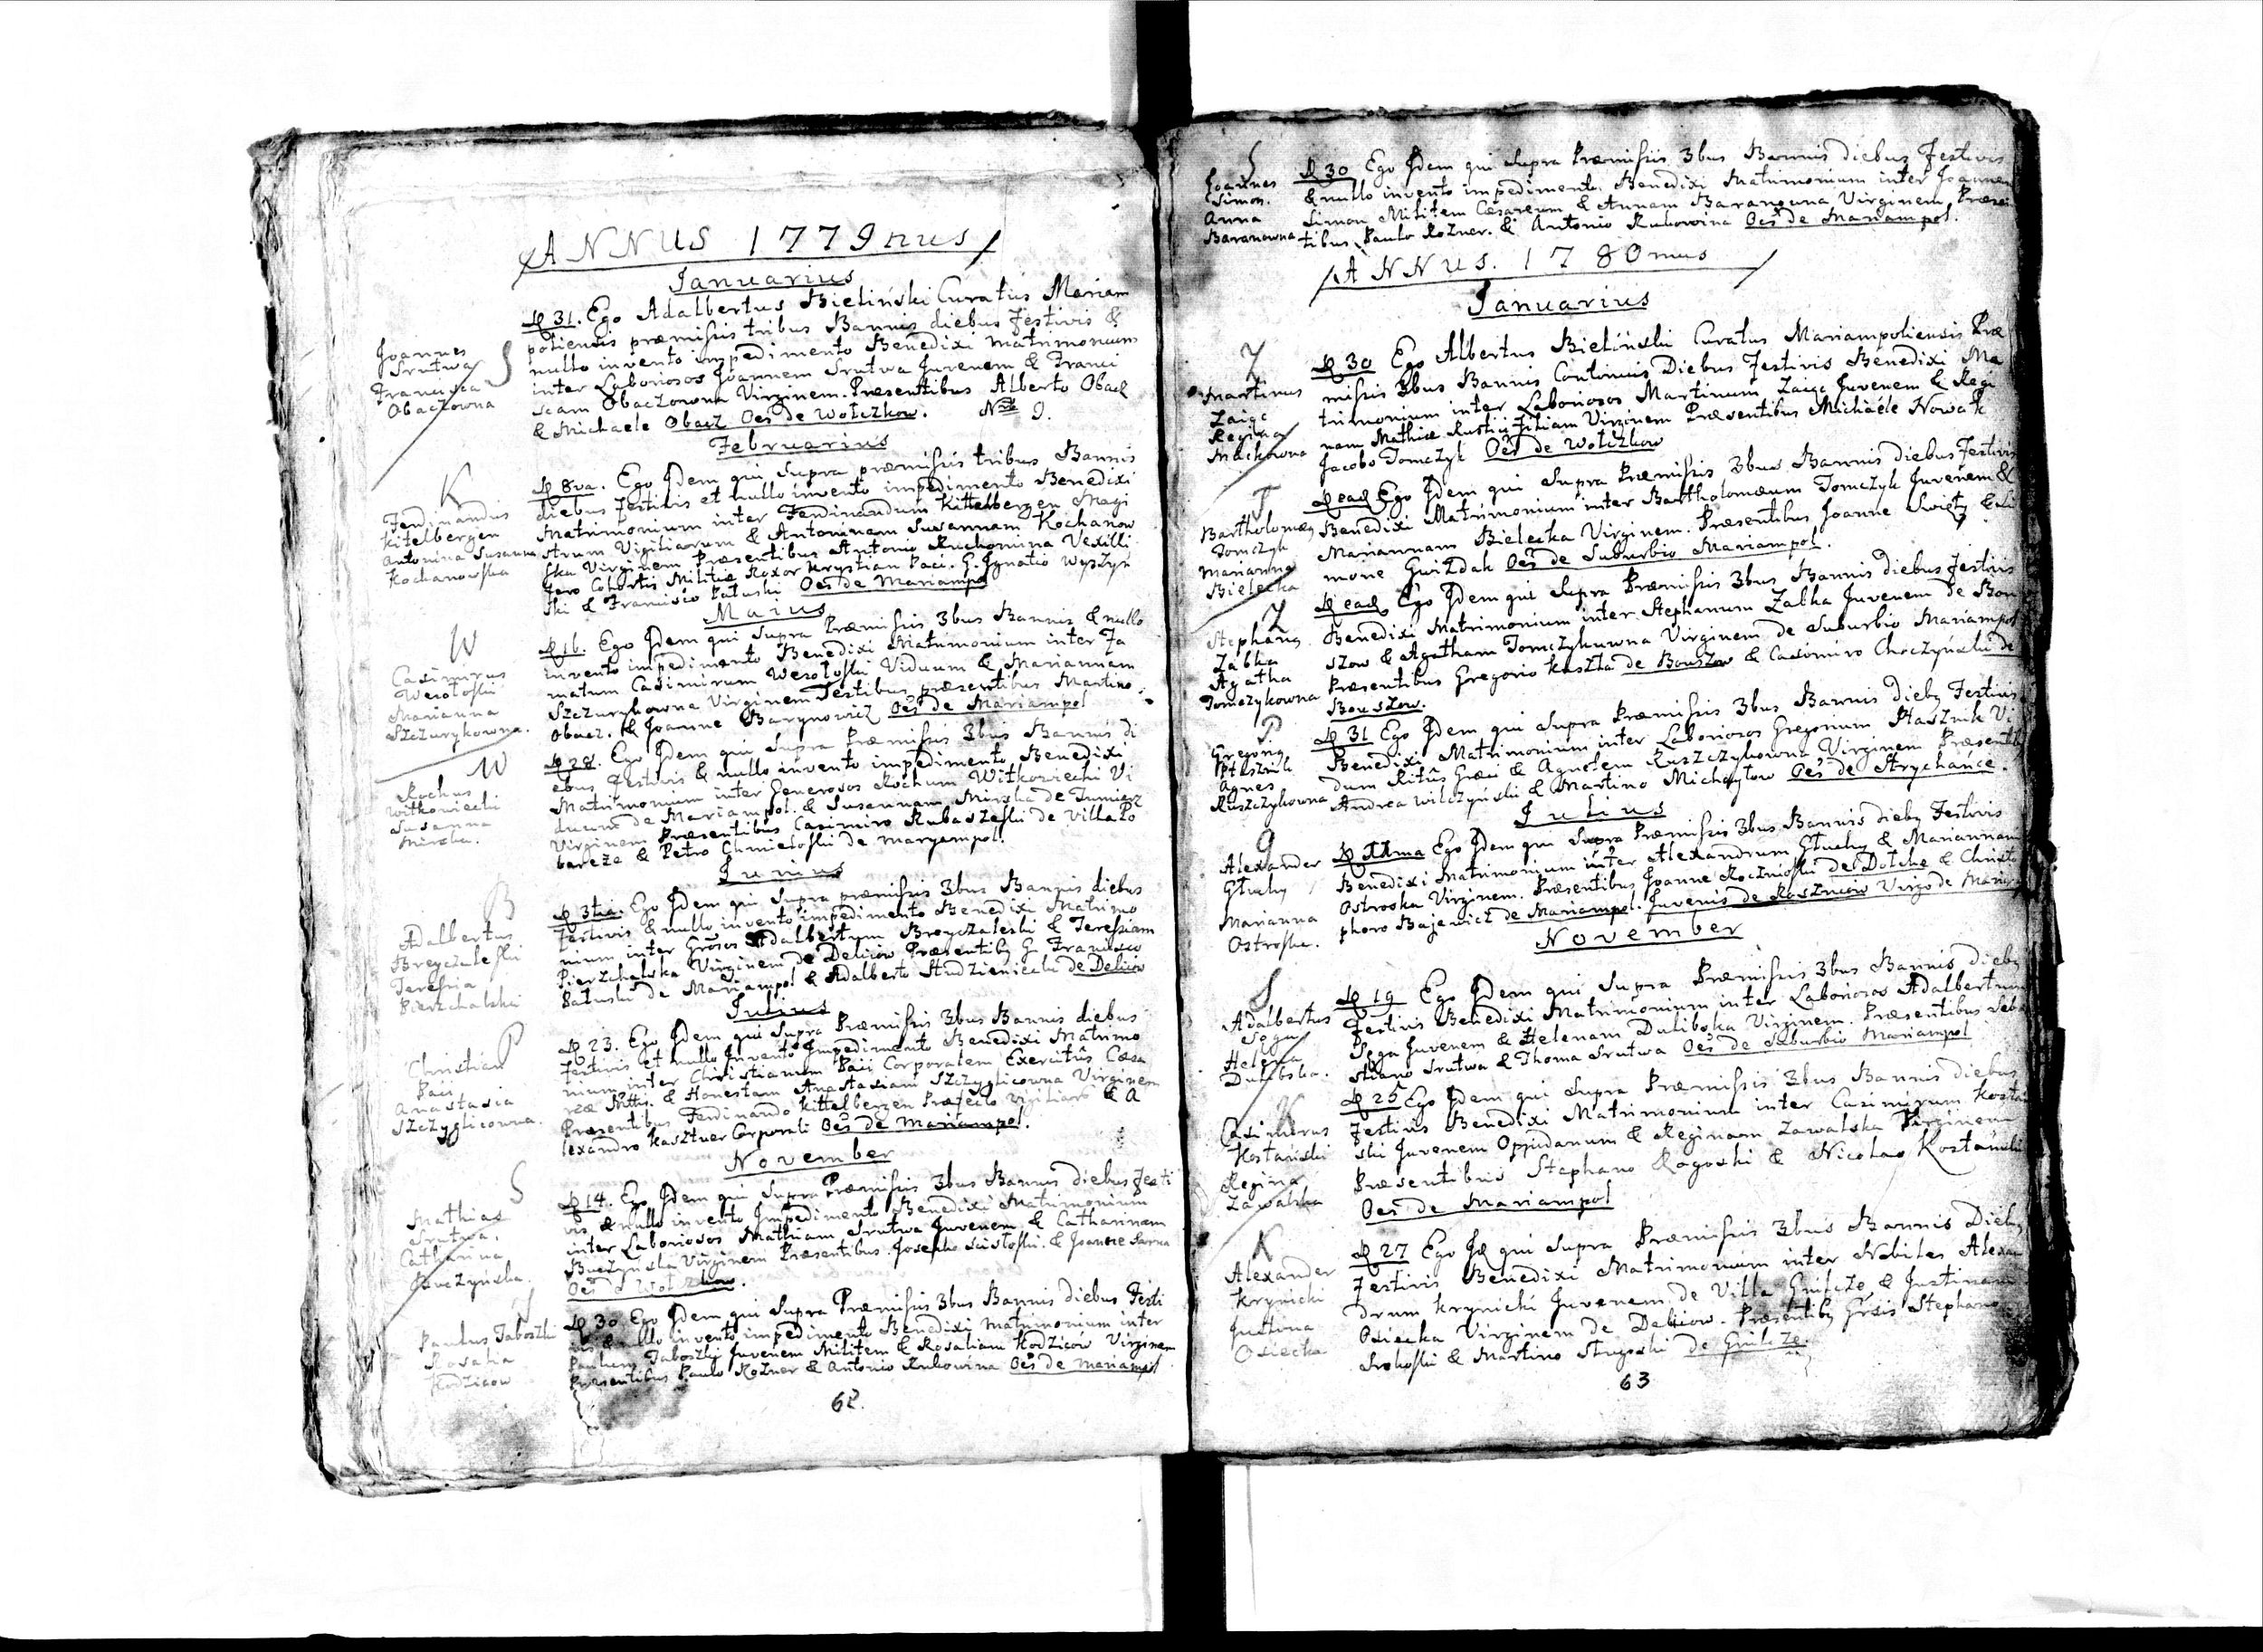 ANNUS 1779nus
Januarius
D 31. Ego Adalbertus Bieliński Curatus Mariam
poliensis præmissis tribus Bannis diebus Festivis &
nullo invento impedimento Benedixi Matrimonium
inter Laboriosos Joannem Srutwa Juvenem & Franci
scam Obaczowna Virginem. Præsentibus Alberto Obacz
& Michaele Obacz Oes de Wołczkow.
Joannes
Srutwa
Francisca
Obaczowna
S
Februarius
D 8va. Ego Idem qui Supra præmissis tribus Bannis
diebus Festivis et nullo invento impedimento Benedixi
Matrimonium inter Ferdinandum Kittelbergen Magi
strum Vigiliarum & Antoninam Susannam Kochanow
ska Virginem Præsentibus Antonio Ruchomina Vexilli
fero Cohortis Militiæ Krystian Paci. G. Ignatio Wyszyń
ski & Francisco Pałuski Oes de Mariampol
K
Ferdinandus
Kitelbergen
Antonina Susanna
Kochanowska
Maius
D 16. Ego Idem qui Supra Præmissis 3bus Bannis & nullo
invento impedimento Benedixi Matrimonium inter Fa
matum Casimirum Wesołoski Viduum & Mariannam
Szczurykowna Virginem Testibus præsentibus Martino
Obacz. & Joanne Barynowicz Oes de Mariampol
W
Casimirus
Wesołoski
Marianna
Szczurykowna.
D 28. Ego Idem qui Supra Præmissis 3bus Bannis di
ebus Festivis & nullo invento impedimento Benedixi
Matrimonium inter Generosos Rochum Witkowiecki Vi
duum de Mariampol. & Susannam Mirska de
Virginem Præsentibus Casimiro Rubaszeski de Villa Po
bereże & Petro Chmieloski de Maryampol.
W
Rochus
Witkowiecki
Susanna
Mirska.
Junius
D 3tia. Ego Idem qui Supra præmissis 3bus Bannis diebus
Festivis & nullo invento impedimento Benedixi Matrimo
nium inter Grosos Adalbertum Breyczaleski & Teressiam
Pierzchalska Virginem de Deliiow Præsentibq G. Francisco
Pałuski de Mariampol & Adalberto Studzieniecki de Deliiow
B
Adalbertus
Breyczaleski
Teressia
Pierzchalski
Julius
D 23. Ego Idem qui Supra Præmissis 3bus Bannis diebus
Festivis et nullo Invento Impedimento Benedixi Matrimo
nium inter Christianum Paci Corporalem Exercitus Cæsa
reæ Mttis. & Honestam Anastasiam Szczyglicowna Virginem
Præsentibus Ferdinando Kittelbergen Præfecto Vigiliars & A
lexandro Kasztner Corporali Oes de Mariampol.
P
Christian
Paci
Anastasia
Szczyglicowna.
November
D 14. Ego Idem qui Supra Præmissis 3bus Bannis diebus Festi
vis & nullo invento Impedimento Benedixi Matrimonium
inter Laboriosos Mathiam Srutwa Juvenem & Catharinam
Buczyńska Virginem Præsentibus Josepho & Joanne Sarna
Oes d Wołczkow.
S
Mathias
Srutwa.
Catharina
Buczyńska.
D 30 Ego Idem qui Supra Præmissis 3bus Bannis diebus Festi
vis & nullo invento impedimento Benedixi matrimonium inter
Paulum Jaboszki Juvenem Militem & Rosaliam Kodzicow Virginem
Præsentibus Paulo Rozner & Antonio Rukowina Oes de Mariampol
Paulus Jaboszki
Rosalia
Kodzicow
62.
D 30 Ego Idem qui Supra Præmissis 3bus Bannis diebus Festivis
& nullo invento impedimento. Benedixi Matrimonium inter Joannem
Simon Militem Cæsareum & Annam Baranowna Virginem, Præsen
tibus Paulo Rozner. & Antonio Rukowina Oes de Mariampol.
S
Joannes
Simon.
Anna
Baranowna
ANNUS. 1780mus
Januarius
D 30 Ego Albertus Bieliński Curatus Mariampoliensis Præ
missis 3bus Bannis Continuis Diebus Festivis Benedixi Ma
trimonium inter Laboriosos Martinum Zaiąc Juvenem & Regi
nam Mathiæ Rustici Filiam Virginem Præsentibus Michaele Nowak
Jacobo Tomczyk Oes de Wołczkow
Z
Martinus
Zaiąc
Regina
Maćkowna
D ead Ego Idem qui Supra Præmissis 3bus Bannis diebus Festivis
Benedixi Matrimonium inter Bartholomæum Tomczyk Juvenem &
Mariannam Bielecka Virginem. Præsentibus Joanne Swięty & Si
mone Gwizdak Oes de Suburbio Mariampol.
T
Bartholomeq
Tomczyk
Marianna
Bielecka
D ead Ego Idem qui Supra Præmissis 3bus Bannis diebus Festivis
Benedixi Matrimonium inter Stephanum Załka Juvenem de Bou
szow & Agatham Tomczykuwna Virginem de Suburbio Mariampol
Præsentibus Gregorio Kaszta de Bouszow & Casimiro Chęczyński de
Bouszow.
Z
Stephanq
Załka
Agatha
Tomczykowna
D 31 Ego Idem qui Supra Præmissis 3bus Bannis diebq Festivis
Benedixi Matrimonium inter Laboriosos Gregorium Ptasznik Vi
dum Ritûs Græci & Agnetem Ruszczykowna Virginem Præsentib
Andrea Wilczyński & Martino Michayłow Oes de Strychańce.
P.
Gregorq
Ptasznik
Agnes
Ruszczykowna
Julius
D Ego Idem qui Supra Præmissis 3bus Bannis diebq Festivis
Benedixi Matrimonium inter Alexandrum Głuchy & Mariannam
Ostroska Virginem. Præsentibus Joanne Kocznioski de Dołhe & Christo
phoro Bajewicz de Mariampol. Juvenis de Virgo de Mariam
G
Alexander
Głuchy
Marianna
Ostroska.
November
D 19 Ego Idem qui Supra Præmissis 3bus Bannis diebq
Festivis Benedixi Matrimonium inter Laboriosos Adalbertum
Soga Juvenem & Helenam Dulibska Virginem. Præsentibus Seba
stiano Srutwa & Thoma Srutwa Oes de Suburbio Mariampol
S
Adalbertus
Soga
Helena
Dulibska.
D 25 Ego Idem qui Supra Præmissis 3bus Bannis diebus
Festivis Benedixi Matrimonium inter Casimirum Kostań
ski Juvenem Oppidanum & Reginam Zawalska Virginem
Præsentibus Stephano Rogoski & Nicolao Kostański
Oes de Mariampol
K
Casimirus
Kostański
Regina
Zawalska
D 27 Ego Id qui Supra Præmissis 3bus Bannis Diebq
Festivis Benedixi Matrimonium inter Nobiles Alexan
drum Krynicki Juvenem de Villa Gnilcze & Justinam
Osiecka Virginem de Deliiow. Præsentibq Grosis Stephano
Srokoski & Martino Strzyoski de Gnilcze.
K
Alexander
Krynicki
Justina
Osiecka
63